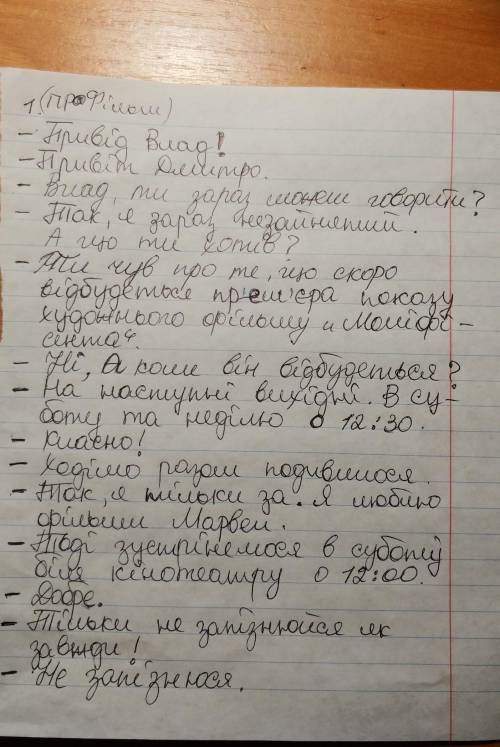 1. (ПРО Фільм)
- Привід Влад!
- Привіт Дмитро.
- Влад, ти зараз можеш говорити?
- Так, я зараз незайнятий.
А що ти хотів?
- Ти чув про те, що скоро
відбудеться прем'єра показу
художнього фільму "Маліфі-
сента".
- Ні, А коли він відбудеться?
- На наступні вихідні. В су-
боту та неділю о 12:30.
- Класно!
- Ходімо разом подивимося.
- Так, я тільки за. Я люблю
фільми Марвел.
- Тоді зустрінемося в суботу
біля кінотеатру о 12:00.
- Добре.
- Тільки не запізнюйся як
завжди!
- Не запізнюся.